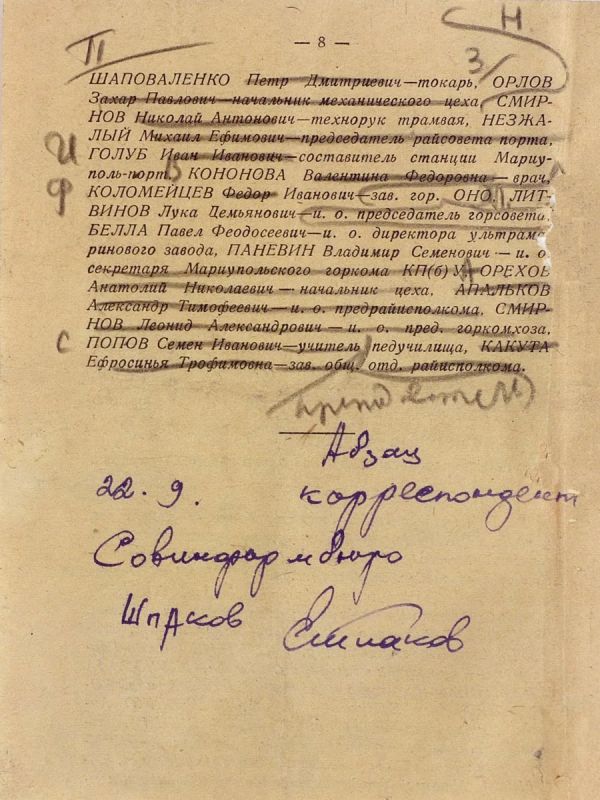 — 8 —
П
Н.
З/
ШАПОВАЛЕНКО Петр Дмитриевич—токарь, ОРЛОВ
Захар Павлович—начальник механического цеха, СМИР-
НОВ Николай Антонович—технорук трамвая, НЕЗЖА-
ЛЫЙ Михаил Ефимович—председатель райсовета порта,
ГОЛУБ Иван Иванович—составитель станции Мариу-
поль-порт, КОНОНОВА Валентина Федоровна—врач,
КОЛОМЕЙЦЕВ Федор Иванович—зав. гор. ОНО, ЛИТ-
ВИНОВ Лука Демьянович—и. о. председатель горсовета,
БЕЛЛА Павел Феодосеевич—и. о. директора ультрама-
ринового завода, ПАНЕВИН Владимир Семенович—и. о.
секретаря Мариупольского горкома КП(б)У, ОРЕХОВ
Анатолий Николаевич—начальник цеха, АПАЛЬКОВ
Александр Тимофеевич—и. о. предрайисполкома, СМИР-
НОВ Леонид Александрович—и. о. пред. горкомхоза,
ПОПОВ Семен Иванович—учитель педучилища, КАКУТА
Ефросинья Трофимовна—зав. общ. отд. райисполкома.
И
Ф
с
Абзац
22. 9. корреспондент
Совинформбюро
Шпаков